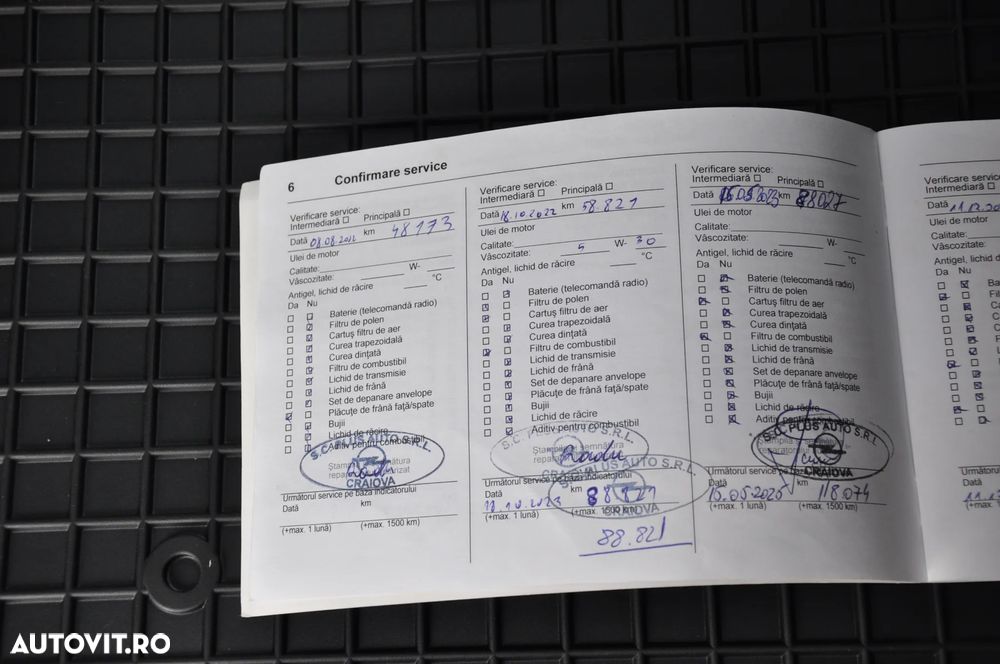 6 Confirmare service
Verificare service:
Intermediară Principală
Dată 08.08.2022 km 48173
Ulei de motor
Calitate:
Vâscozitate: W- °C
Antigel, lichid de răcire
Da Nu
Baterie (telecomandă radio)
Filtru de polen
Cartuş filtru de aer
Curea trapezoidală
Curea dinţată
Filtru de combustibil
Lichid de transmisie
Lichid de frână
Set de depanare anvelope
Plăcuţe de frână faţă/spate
Bujii
Lichid de răcire
Aditiv pentru combustibil
S.C. PLUS AUTO S.R.L.
CRAIOVA
Următorul service pe baza indicatorului
Dată km
(+max. 1 lună) (+max. 1500 km)
Verificare service:
Intermediară Principală
Dată 18.10.2022 km 58.821
Ulei de motor
Calitate:
Vâscozitate: 5 W- 30
Antigel, lichid de răcire °C
Da Nu
Baterie (telecomandă radio)
Filtru de polen
Cartuş filtru de aer
Curea trapezoidală
Curea dinţată
Filtru de combustibil
Lichid de transmisie
Lichid de frână
Set de depanare anvelope
Plăcuţe de frână faţă/spate
Bujii
Lichid de răcire
Aditiv pentru combustibil
S.C. PLUS AUTO S.R.L.
Radu
CRAIOVA
PLUS AUTO S.R.L.
CRAIOVA
Următorul service pe baza indicatorului
Dată 18.10.2023 km 88.821
(+max. 1 lună) (+max. 1500 km)
88.821
Verificare service:
Intermediară Principală
Dată 15.05.2023 km 88027
Ulei de motor
Calitate:
Vâscozitate: W-
Antigel, lichid de răcire °C
Da Nu
Baterie (telecomandă radio)
Filtru de polen
Cartuş filtru de aer
Curea trapezoidală
Curea dinţată
Filtru de combustibil
Lichid de transmisie
Lichid de frână
Set de depanare anvelope
Plăcuţe de frână faţă/spate
Bujii
Lichid de răcire
Aditiv pentru combustibil
S.C. PLUS AUTO S.R.L.
CRAIOVA
Următorul service pe baza indicatorului
Dată 15.05.2025 km 118074
(+max. 1 lună) (+max. 1500 km)
Verificare service:
Intermediară
Dată
Ulei de motor
Calitate:
Vâscozitate:
Antigel, lichid de
Da Nu
Următorul service
Dată
(+max. 1 lună)
AUTOVIT.RO